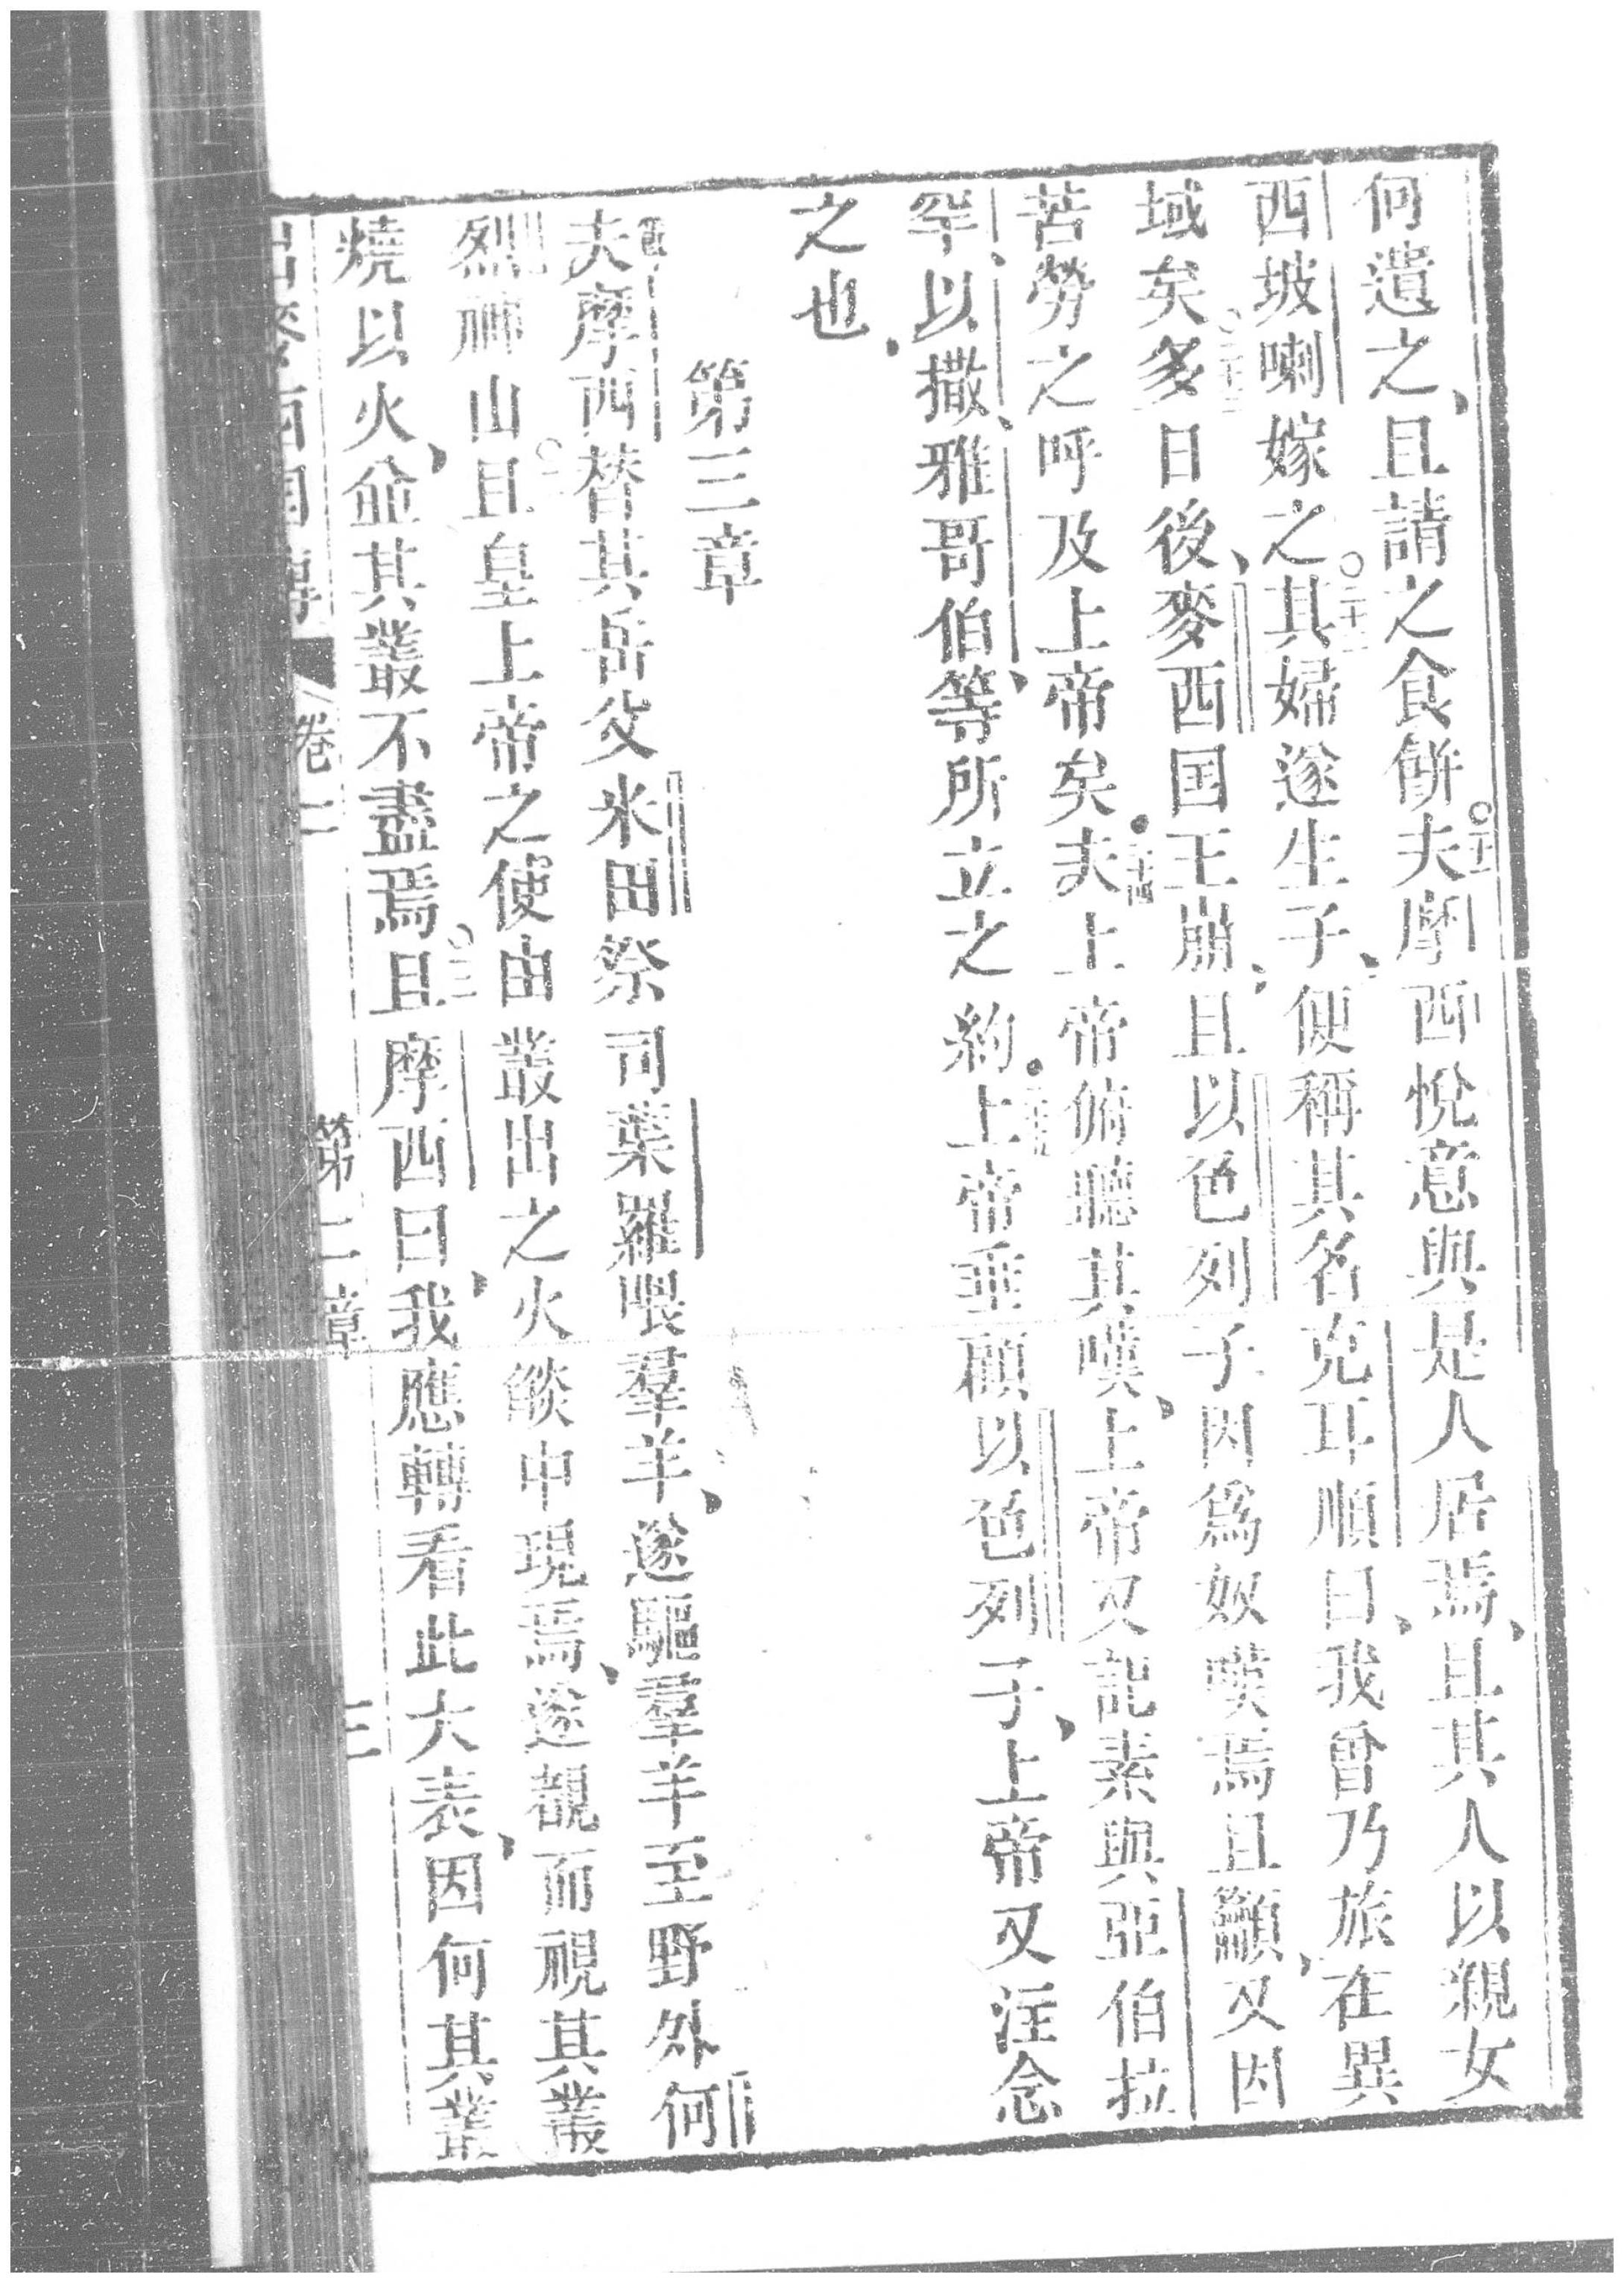 何遺之、且請之食餅○二十一夫摩西悅意與是人居焉、且其人以親女
西坡喇嫁之○二十二其婦遂生子、便稱其名克耳順曰、我曾乃旅在異
域矣○二十三多日後、麥西国王崩、且以色列子因爲奴嘆焉且籲、又因
苦勞之呼及上帝矣。二十四夫上帝俯聽其嘆、上帝又記素與亞伯拉
罕、以撒、雅哥伯、等所立之約。二十五上帝垂顧以色列子、上帝又注念
之也、
第三章
夫摩西替其岳父米田祭司葉羅喂羣羊、遂驅羣羊至野外何
烈神山○二且皇上帝之使由叢出之火燄中現焉、遂覩而視其叢
燒以火、並其叢不盡焉○三且摩西曰、我應轉看此大表、因何其叢
卷二
第二章
三